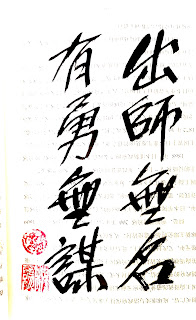 出師無名
有勇無謀